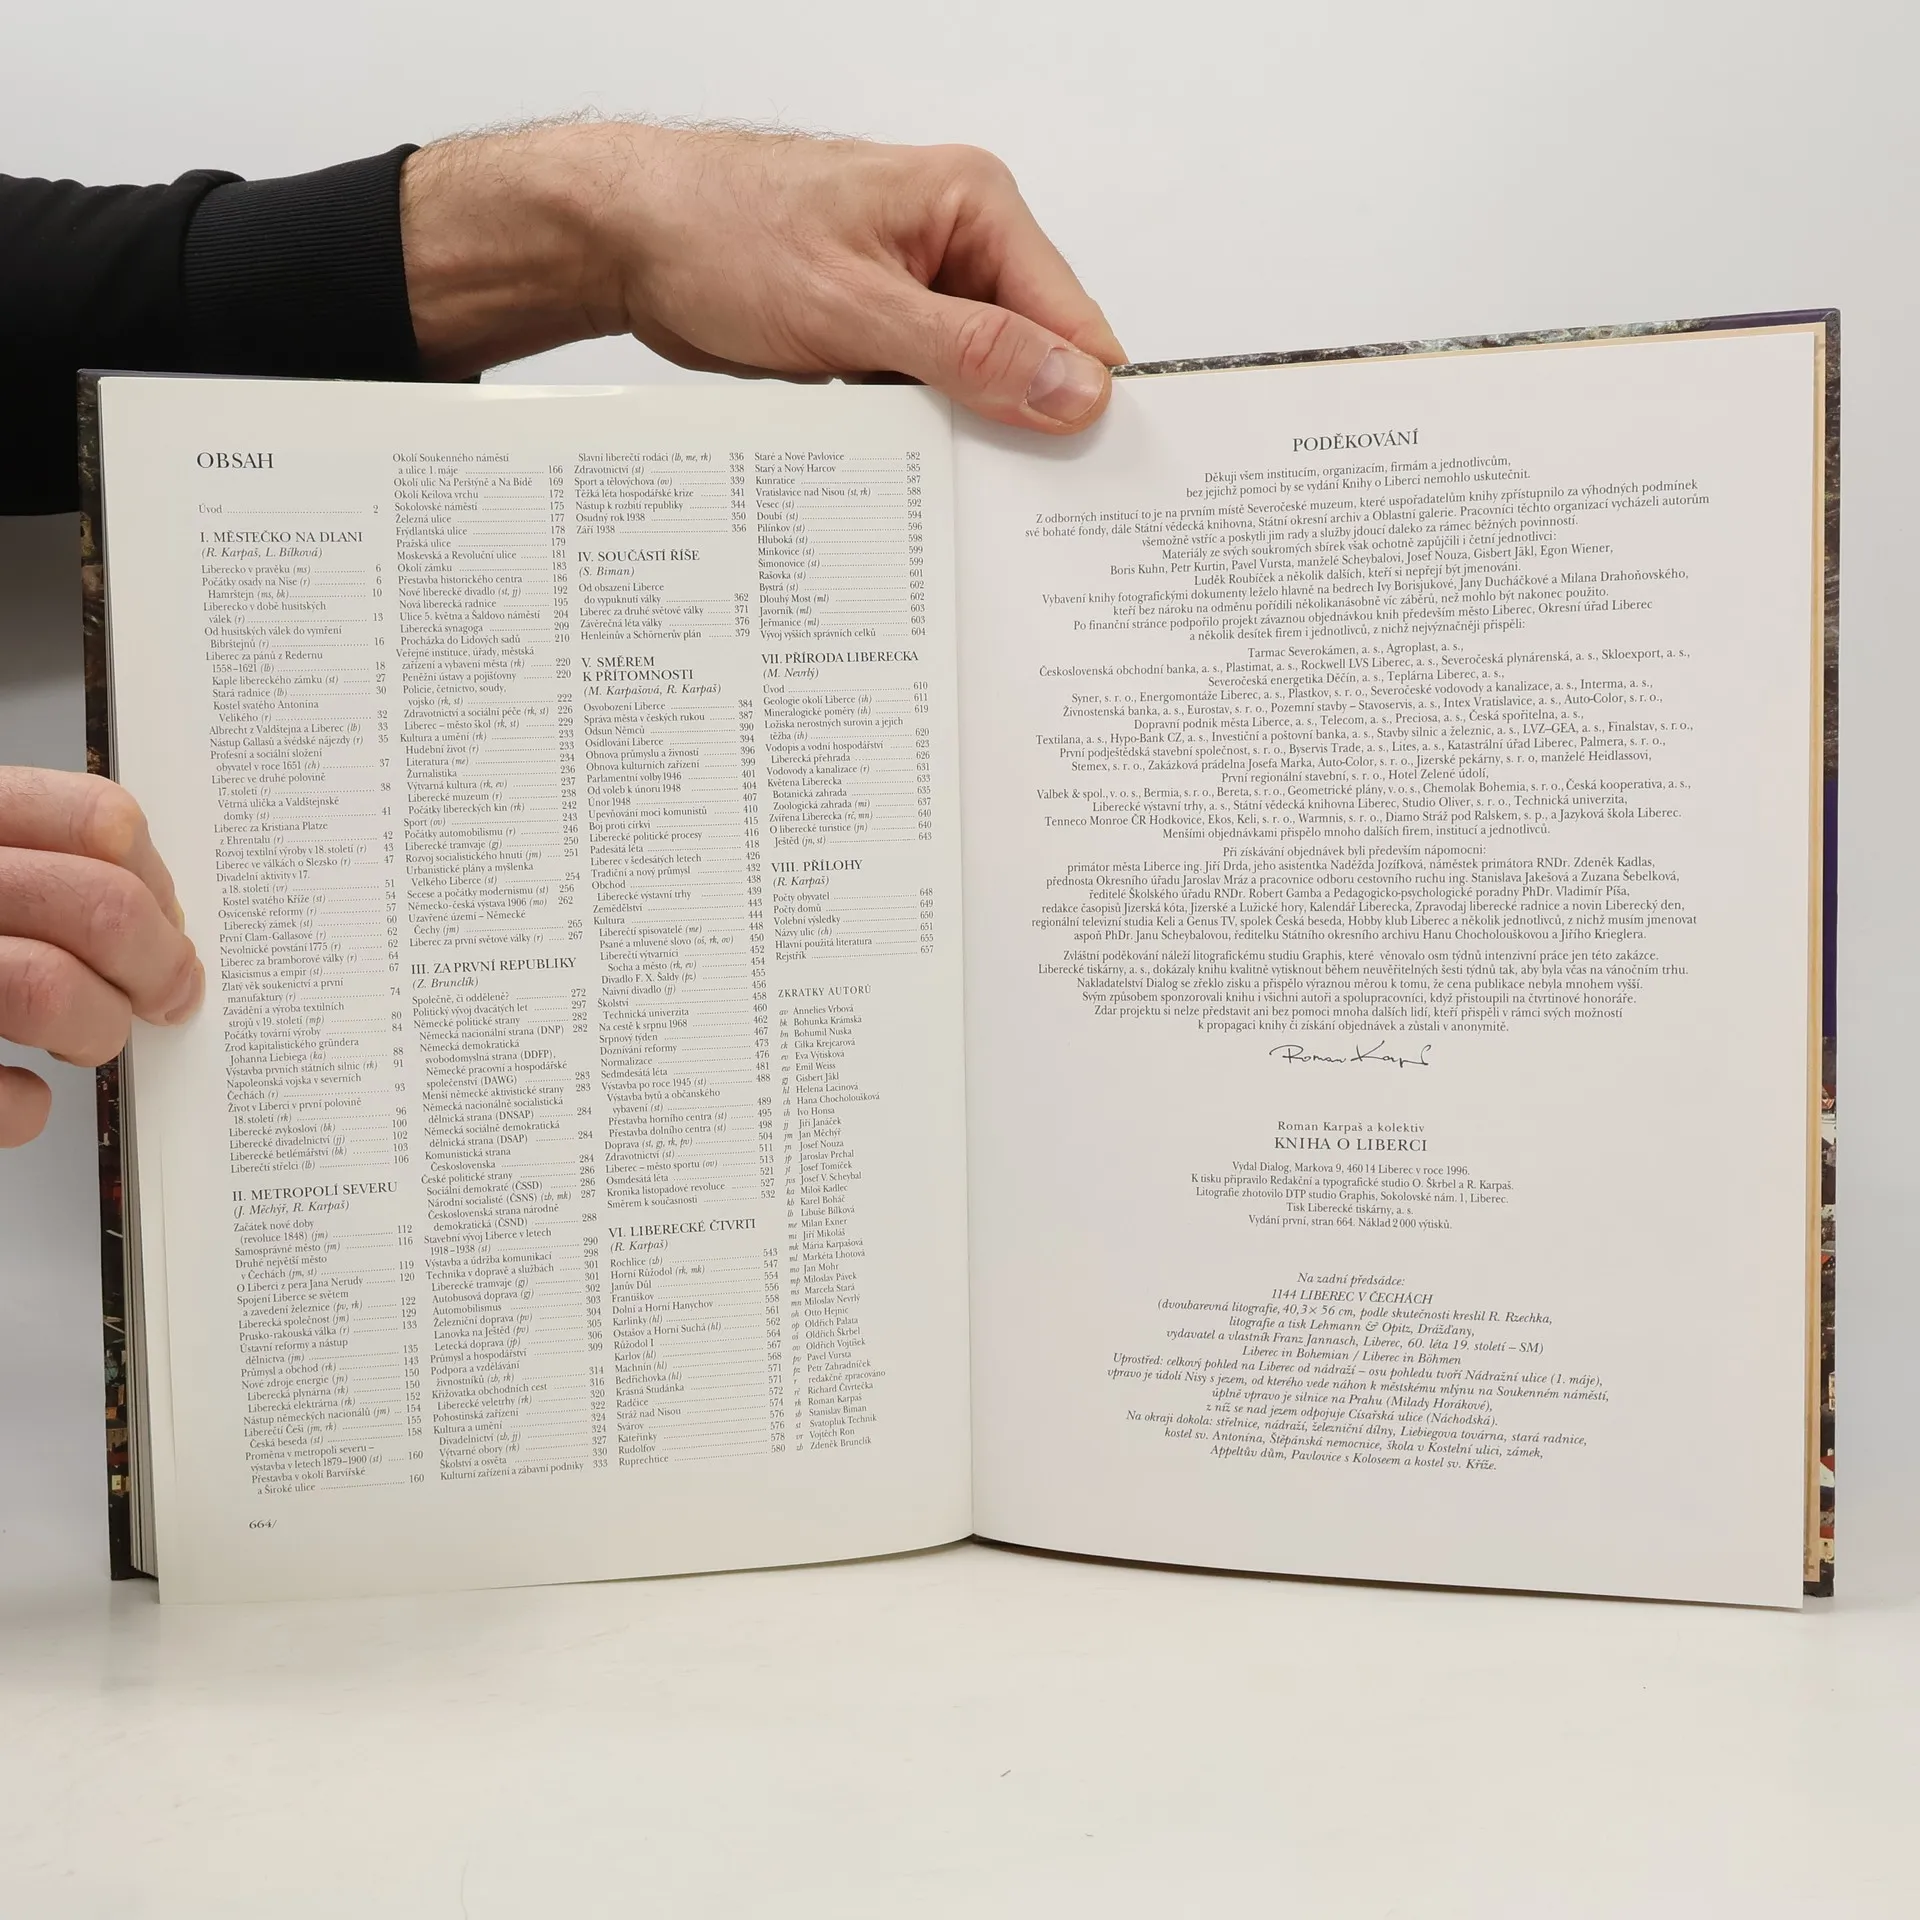 OBSAH
Úvod 2
I. MĚSTEČKO NA DLANI
(R. Karpaš, L. Bílková)
Liberecko v pravěku (ms) 6
Počátky osady na Nise (r) 6
Hamrštejn (ms, bk) 10
Liberecko v době husitských
válek (r) 13
Od husitských válek do vymření
Bibrštejnů (r) 16
Liberec za pánů z Redernu
1558–1621 (lb) 18
Kaple libereckého zámku (st) 27
Stará radnice (lb) 30
Kostel svatého Antonína
Velikého (r) 32
Albrecht z Valdštejna a Liberec (lb) 33
Nástup Gallasů a švédské nájezdy (r) 35
Profesní a sociální složení
obyvatel v roce 1651 (ch) 37
Liberec ve druhé polovině
17. století (r) 38
Větrná ulička a Valdštejnské
domky (st) 41
Liberec za Kristiana Platze
z Ehrentalu (r) 42
Rozvoj textilní výroby v 18. století (r) 43
Liberec ve válkách o Slezsko (r) 47
Divadelní aktivity v 17.
a 18. století (vr) 51
Kostel svatého Kříže (st) 54
Osvícenské reformy (r) 57
Liberecký zámek (st) 60
První Clam-Gallasové (r) 62
Nevolnické povstání 1775 (r) 62
Liberec za bramborové války (r) 64
Klasicismus a empír (st) 67
Zlatý věk soukenictví a první
manufaktury (r) 74
Zavádění a výroba textilních
strojů v 19. století (mp) 80
Počátky tovární výroby 84
Zrod kapitalistického gründera
Johanna Liebiega (ka) 88
Výstavba prvních státních silnic (rk) 91
Napoleonská vojska v severních
Čechách (r) 93
Život v Liberci v první polovině
18. století (rk) 96
Liberecké zvykosloví (bk) 100
Liberecké divadelnictví (jj) 102
Liberecké betlémářství (bk) 103
Liberečtí střelci (lb) 106
II. METROPOLÍ SEVERU
(J. Měchýř, R. Karpaš)
Začátek nové doby
(revoluce 1848) (jm) 112
Samosprávné město (jm) 116
Druhé největší město
v Čechách (jm, st) 119
O Liberci z pera Jana Nerudy 120
Spojení Liberce se světem
a zavedení železnice (pv, rk) 122
Liberecká společnost (jm) 129
Prusko-rakouská válka (r) 133
Ústavní reformy a nástup
dělnictva (jm) 135
Průmysl a obchod (rk) 143
Nové zdroje energie (jn) 150
Liberecká plynárna (rk) 150
Liberecká elektrárna (rk) 152
Nástup německých nacionálů (jm) 154
Liberečtí Češi (jm, rk) 155
Česká beseda (st) 158
Proměna v metropoli severu –
výstavba v letech 1879–1900 (st) 160
Přestavba v okolí Barvířské
a Široké ulice 160
664/
Okolí Soukenného náměstí
a ulice 1. máje 166
Okolí ulic Na Perštýně a Na Bídě 169
Okolí Keilova vrchu 172
Sokolovské náměstí 175
Železná ulice 177
Frýdlantská ulice 178
Pražská ulice 179
Moskevská a Revoluční ulice 181
Okolí zámku 183
Přestavba historického centra 186
Nové liberecké divadlo (st, jj) 192
Nová liberecká radnice 195
Ulice 5. května a Šaldovo náměstí 204
Liberecká synagoga 209
Procházka do Lidových sadů 210
Veřejné instituce, úřady, městská
zařízení a vybavení města (rk) 220
Peněžní ústavy a pojišťovny 220
Policie, četnictvo, soudy,
vojsko (rk, st) 222
Zdravotnictví a sociální péče (rk, st) 226
Liberec – město škol (rk, st) 229
Kultura a umění (rk) 233
Hudební život (r) 233
Literatura (me) 234
Žurnalistika 236
Výtvarná kultura (rk, ev) 237
Liberecké muzeum (r) 238
Počátky libereckých kin (rk) 242
Sport (ov) 243
Počátky automobilismu (r) 246
Liberecké tramvaje (gj) 250
Rozvoj socialistického hnutí (jm) 251
Urbanistické plány a myšlenka
Velkého Liberce (st) 254
Secese a počátky modernismu (st) 256
Německo-česká výstava 1906 (mo) 262
Uzavřené území – Německé
Čechy (jm) 265
Liberec za první světové války (r) 267
III. ZA PRVNÍ REPUBLIKY
(Z. Brunclík)
Společně, či odděleně? 272
Politický vývoj dvacátých let 297
Německé politické strany 282
Německá nacionální strana (DNP) 282
Německá demokratická
svobodomyslná strana (DDFP),
Německé pracovní a hospodářské
společenství (DAWG) 283
Menší německé aktivistické strany 283
Německá nacionálně socialistická
dělnická strana (DNSAP) 284
Německá sociálně demokratická
dělnická strana (DSAP) 284
Komunistická strana
Československa 284
České politické strany 286
Sociální demokraté (ČSSD) 286
Národní socialisté (ČSNS) (zb, mk) 287
Československá strana národně
demokratická (ČSND) 288
Stavební vývoj Liberce v letech
1918–1938 (st) 290
Výstavba a údržba komunikací 298
Technika v dopravě a službách 301
Liberecké tramvaje (gj) 301
Autobusová doprava (gj) 302
Automobilismus 303
Železniční doprava (pv) 304
Lanovka na Ještěd (pv) 305
Letecká doprava (jp) 306
Průmysl a hospodářství 309
Podpora a vzdělávání
živnostníků (zb, rk) 314
Křižovatka obchodních cest 316
Liberecké veletrhy (rk) 320
Pohostinská zařízení 322
Kultura a umění 324
Divadelnictví (zb, jj) 324
Výtvarné obory (rk) 327
Školství a osvěta 330
Kulturní zařízení a zábavní podniky 333
Slavní liberečtí rodáci (lb, me, rk) 336
Zdravotnictví (st) 338
Sport a tělovýchova (ov) 339
Těžká léta hospodářské krize 341
Nástup k rozbití republiky 344
Osudný rok 1938 350
Září 1938 356
IV. SOUČÁSTÍ ŘÍŠE
(S. Biman)
Od obsazení Liberce
do vypuknutí války 362
Liberec za druhé světové války 371
Závěrečná léta války 376
Henleinův a Schörnerův plán 379
V. SMĚREM
K PŘÍTOMNOSTI
(M. Karpašová, R. Karpaš)
Osvobození Liberce 384
Správa města v českých rukou 387
Odsun Němců 390
Osídlování Liberce 394
Obnova průmyslu a živností 396
Obnova kulturních zařízení 399
Parlamentní volby 1946 401
Od voleb k únoru 1948 404
Únor 1948 407
Upevňování moci komunistů 410
Boj proti církvi 415
Liberecké politické procesy 416
Padesátá léta 418
Liberec v šedesátých letech 426
Tradiční a nový průmysl 432
Obchod 438
Liberecké výstavní trhy 439
Zemědělství 443
Kultura 444
Liberečtí spisovatelé (me) 448
Psané a mluvené slovo (oš, rk, ov) 450
Liberečtí výtvarníci 452
Socha a město (rk, ev) 454
Divadlo F. X. Šaldy (pz) 455
Naivní divadlo (jj) 456
Školství 458
Technická univerzita 460
Na cestě k srpnu 1968 462
Srpnový týden 467
Doznívání reformy 473
Normalizace 476
Sedmdesátá léta 481
Výstavba po roce 1945 (st) 488
Výstavba bytů a občanského
vybavení (st) 489
Přestavba horního centra (st) 495
Přestavba dolního centra (st) 498
Doprava (st, gj, rk, pv) 504
Zdravotnictví (st) 511
Liberec – město sportu (ov) 513
Osmdesátá léta 521
Kronika listopadové revoluce 527
Směrem k současnosti 532
VI. LIBERECKÉ ČTVRTI
(R. Karpaš)
Rochlice (zb) 543
Horní Růžodol (rk, mk) 547
Janův Důl 554
Františkov 556
Dolní a Horní Hanychov 558
Karlinky (hl) 561
Ostašov a Horní Suchá (hl) 562
Růžodol I 564
Karlov (hl) 567
Machnín (hl) 568
Bedřichovka (hl) 571
Krásná Studánka 571
Radčice 572
Stráž nad Nisou 574
Svárov 576
Kateřinky 576
Rudolfov 578
Ruprechtice 580
Staré a Nové Pavlovice 582
Starý a Nový Harcov 585
Kunratice 587
Vratislavice nad Nisou (st, rk) 588
Vesec (st) 592
Doubí (st) 594
Pilínkov (st) 596
Hluboká (st) 598
Minkovice (st) 599
Šimonovice (st) 599
Rašovka (st) 601
Bystrá (st) 602
Dlouhý Most (ml) 602
Javorník (ml) 603
Jeřmanice (ml) 603
Vývoj vyšších správních celků 604
VII. PŘÍRODA LIBERECKA
(M. Nevrlý)
Úvod 610
Geologie okolí Liberce (ih) 611
Mineralogické poměry (ih) 619
Ložiska nerostných surovin a jejich
těžba (ih) 620
Vodopis a vodní hospodářství 623
Liberecká přehrada 626
Vodovody a kanalizace (r) 631
Květena Liberecka 633
Botanická zahrada 635
Zoologická zahrada (mi) 637
Zvířena Liberecka (rč, mn) 640
O liberecké turistice (jn) 640
Ještěd (jn, st) 643
VIII. PŘÍLOHY
(R. Karpaš)
Počty obyvatel 648
Počty domů 649
Volební výsledky 650
Názvy ulic (ch) 651
Hlavní použitá literatura 655
Rejstřík 657
ZKRATKY AUTORŮ
av Annelies Vrbová
bk Bohunka Krámská
bn Bohumil Nuska
ck Cilka Krejcarová
ev Eva Výtisková
ew Emil Weiss
gj Gisbert Jäkl
hl Helena Lacinová
ch Hana Chocholoušková
ih Ivo Honsa
jj Jiří Janáček
jm Jan Měchýř
jn Josef Nouza
jp Jaroslav Prchal
jt Josef Tomíček
jvs Josef V. Scheybal
ka Miloš Kadlec
kb Karel Boháč
lb Libuše Bílková
me Milan Exner
mi Jiří Mikoláš
mk Mária Karpašová
ml Markéta Lhotová
mo Jan Mohr
mp Miloslav Pávek
ms Marcela Stará
mn Miloslav Nevrlý
oh Otto Hejnic
op Oldřich Palata
oš Oldřich Škrbel
ov Oldřich Vojtíšek
pv Pavel Vursta
pz Petr Zahradníček
r redakčně zpracováno
rč Richard Čtvrtečka
rk Roman Karpaš
sb Stanislav Biman
st Svatopluk Technik
vr Vojtěch Ron
zb Zdeněk Brunclík
PODĚKOVÁNÍ
Děkuji všem institucím, organizacím, firmám a jednotlivcům,
bez jejichž pomoci by se vydání Knihy o Liberci nemohlo uskutečnit.
Z odborných institucí to je na prvním místě Severočeské muzeum, které uspořadatelům knihy zpřístupnilo za výhodných podmínek
své bohaté fondy, dále Státní vědecká knihovna, Státní okresní archiv a Oblastní galerie. Pracovníci těchto organizací vycházeli autorům
všemožně vstříc a poskytli jim rady a služby jdoucí daleko za rámec běžných povinností.
Materiály ze svých soukromých sbírek však ochotně zapůjčili i četní jednotlivci:
Boris Kuhn, Petr Kurtin, Pavel Vursta, manželé Scheybalovi, Josef Nouza, Gisbert Jäkl, Egon Wiener,
Luděk Roubíček a několik dalších, kteří si nepřejí být jmenováni.
Vybavení knihy fotografickými dokumenty leželo hlavně na bedrech Ivy Borisjukové, Jany Ducháčkové a Milana Drahoňovského,
kteří bez nároku na odměnu pořídili několikanásobně víc záběrů, než mohlo být nakonec použito.
Po finanční stránce podpořilo projekt závaznou objednávkou knih především město Liberec, Okresní úřad Liberec
a několik desítek firem i jednotlivců, z nichž nejvýznačněji přispěli:
Tarmac Severokámen, a. s., Agroplast, a. s.,
Československá obchodní banka, a. s., Plastimat, a. s., Rockwell LVS Liberec, a. s., Severočeská plynárenská, a. s., Skloexport, a. s.,
Severočeská energetika Děčín, a. s., Teplárna Liberec, a. s.,
Syner, s. r. o., Energomontáže Liberec, a. s., Plastkov, s. r. o., Severočeské vodovody a kanalizace, a. s., Interma, a. s.,
Živnostenská banka, a. s., Eurostav, s. r. o., Pozemní stavby – Stavoservis, a. s., Intex Vratislavice, a. s., Auto-Color, s. r. o.,
Dopravní podnik města Liberce, a. s., Telecom, a. s., Preciosa, a. s., Česká spořitelna, a. s.,
Textilana, a. s., Hypo-Bank CZ, a. s., Investiční a poštovní banka, a. s., Stavby silnic a železnic, a. s., LVZ–GEA, a. s., Finalstav, s. r. o.,
První podještědská stavební společnost, s. r. o., Byservis Trade, a. s., Lites, a. s., Katastrální úřad Liberec, Palmera, s. r. o.,
Stemex, s. r. o., Zakázková prádelna Josefa Marka, Auto-Color, s. r. o., Jizerské pekárny, s. r. o, manželé Heidlassovi,
První regionální stavební, s. r. o., Hotel Zelené údolí,
Valbek & spol., v. o. s., Bermia, s. r. o., Bereta, s. r. o., Geometrické plány, v. o. s., Chemolak Bohemia, s. r. o., Česká kooperativa, a. s.,
Liberecké výstavní trhy, a. s., Státní vědecká knihovna Liberec, Studio Oliver, s. r. o., Technická univerzita,
Tenneco Monroe ČR Hodkovice, Ekos, Keli, s. r. o., Warmnis, s. r. o., Diamo Stráž pod Ralskem, s. p., a Jazyková škola Liberec.
Menšími objednávkami přispělo mnoho dalších firem, institucí a jednotlivců.
Při získávání objednávek byli především nápomocni:
primátor města Liberce ing. Jiří Drda, jeho asistentka Naděžda Jozífková, náměstek primátora RNDr. Zdeněk Kadlas,
přednosta Okresního úřadu Jaroslav Mráz a pracovnice odboru cestovního ruchu ing. Stanislava Jakešová a Zuzana Šebelková,
ředitelé Školského úřadu RNDr. Robert Gamba a Pedagogicko-psychologické poradny PhDr. Vladimír Píša,
redakce časopisů Jizerská kóta, Jizerské a Lužické hory, Kalendář Liberecka, Zpravodaj liberecké radnice a novin Liberecký den,
regionální televizní studia Keli a Genus TV, spolek Česká beseda, Hobby klub Liberec a několik jednotlivců, z nichž musím jmenovat
aspoň PhDr. Janu Scheybalovou, ředitelku Státního okresního archivu Hanu Chocholouškovou a Jiřího Krieglera.
Zvláštní poděkování náleží litografickému studiu Graphis, které věnovalo osm týdnů intenzivní práce jen této zakázce.
Liberecké tiskárny, a. s., dokázaly knihu kvalitně vytisknout během neuvěřitelných šesti týdnů tak, aby byla včas na vánočním trhu.
Nakladatelství Dialog se zřeklo zisku a přispělo výraznou měrou k tomu, že cena publikace nebyla mnohem vyšší.
Svým způsobem sponzorovali knihu i všichni autoři a spolupracovníci, když přistoupili na čtvrtinové honoráře.
Zdar projektu si nelze představit ani bez pomoci mnoha dalších lidí, kteří přispěli v rámci svých možností
k propagaci knihy či získání objednávek a zůstali v anonymitě.
Roman Karpaš
Roman Karpaš a kolektiv
KNIHA O LIBERCI
Vydal Dialog, Markova 9, 460 14 Liberec v roce 1996.
K tisku připravilo Redakční a typografické studio O. Škrbel a R. Karpaš.
Litografie zhotovilo DTP studio Graphis, Sokolovské nám. 1, Liberec.
Tisk Liberecké tiskárny, a. s.
Vydání první, stran 664. Náklad 2 000 výtisků.
Na zadní předsádce:
1144 LIBEREC V ČECHÁCH
(dvoubarevná litografie, 40,3× 56 cm, podle skutečnosti kreslil R. Rzechka,
litografie a tisk Lehmann & Opitz, Drážďany,
vydavatel a vlastník Franz Jannasch, Liberec, 60. léta 19. století – SM)
Liberec in Bohemian / Liberec in Böhmen
Uprostřed: celkový pohled na Liberec od nádraží – osu pohledu tvoří Nádražní ulice (1. máje),
vpravo je údolí Nisy s jezem, od kterého vede náhon k městskému mlýnu na Soukenném náměstí,
úplně vpravo je silnice na Prahu (Milady Horákové),
z níž se nad jezem odpojuje Císařská ulice (Náchodská).
Na okraji dokola: střelnice, nádraží, železniční dílny, Liebiegova továrna, stará radnice,
kostel sv. Antonína, Štěpánská nemocnice, škola v Kostelní ulici, zámek,
Appeltův dům, Pavlovice s Koloseem a kostel sv. Kříže.